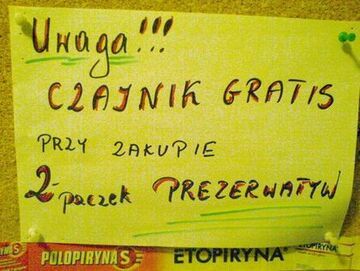 Uwaga!!!
CZAJNIK GRATIS
PRZY ZAKUPIE
2-paczek PREZERWATYW
POLOPIRYNA S ETOPIRYNA ETOPIRYNA